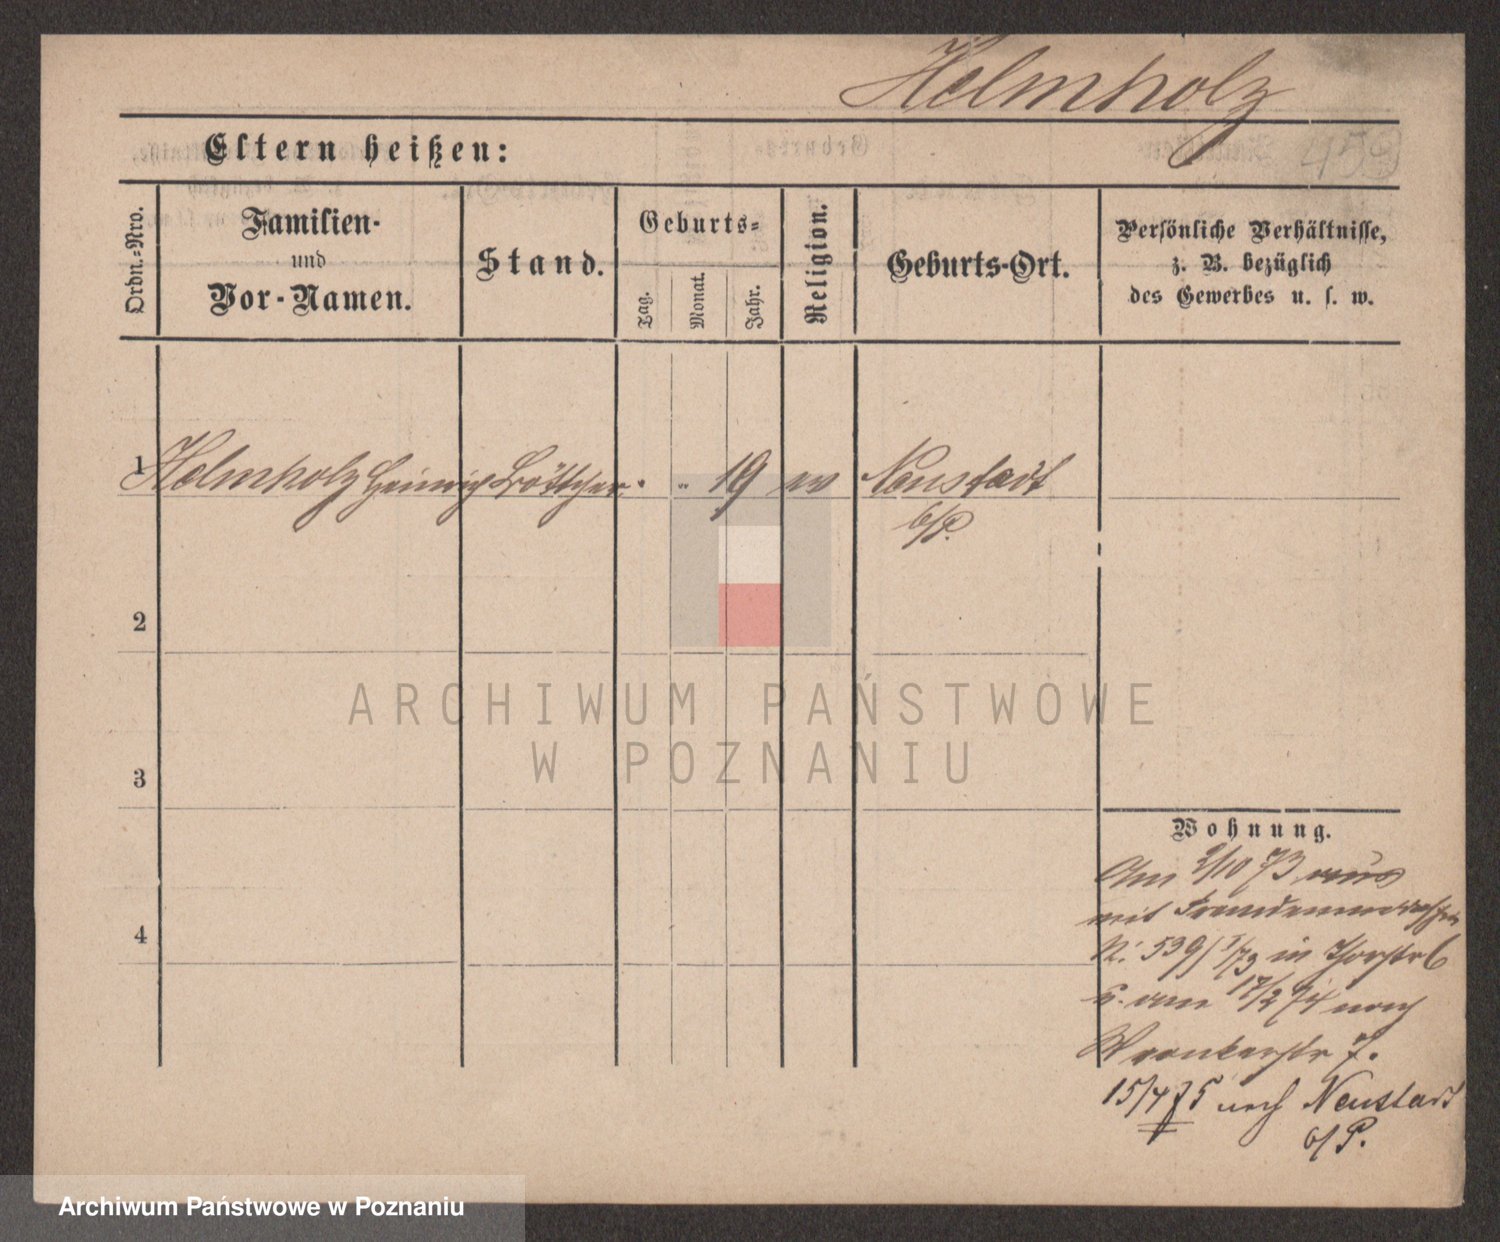 Helmholz
459
Eltern heißen:
Ordn.-Nro.
Familien-
und
Vor-Namen.
Stand.
Geburts-
Tag.
Monat.
Jahr.
Religion.
Geburts-Ort.
Persönliche Verhältnisse,
z. B. bezüglich
des Gewerbes u. s. w.
1 Helmholz Heinrich Böttcher " " 19 ev Neustadt
b/P.
2
3
4
ARCHIWUM PAŃSTWOWE
W POZNANIU
Wohnung.
Am 2/10 73 aus
mit
N. 539/ /73 in Thorstr 6
17/2 74 nach
Wronkerstr 7.
15/4 75 nach Neustadt
b/P.
Archiwum Państwowe w Poznaniu